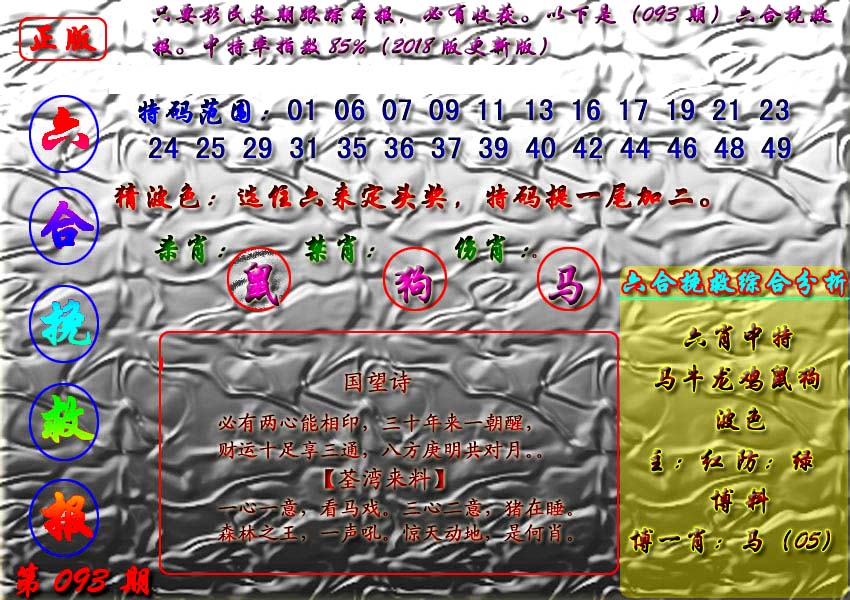 正版
只要彩民长期跟踪本报，必有收获。以下是（093期）六合挽救
报。中特率指数85%（2018版更新版）
六合挽救报
第093期
特码范围：01 06 07 09 11 13 16 17 19 21 23
24 25 29 31 35 36 37 39 40 42 44 46 48 49
猜波色：选住六来定头奖，特码提一尾加二。
杀肖： 禁肖： 伤肖：。
鼠 狗 马
国望诗
必有两心能相印，三十年来一朝醒，
财运十足享三通，八方庚明共对月。。
【荃湾来料】
一心一意，看马戏。三心二意，猪在睡。
森林之王，一声吼。惊天动地，是何肖。
六合挽救综合分析
六肖中特
马牛龙鸡鼠狗
波色
主：红防：绿
博料
博一肖：马（05）